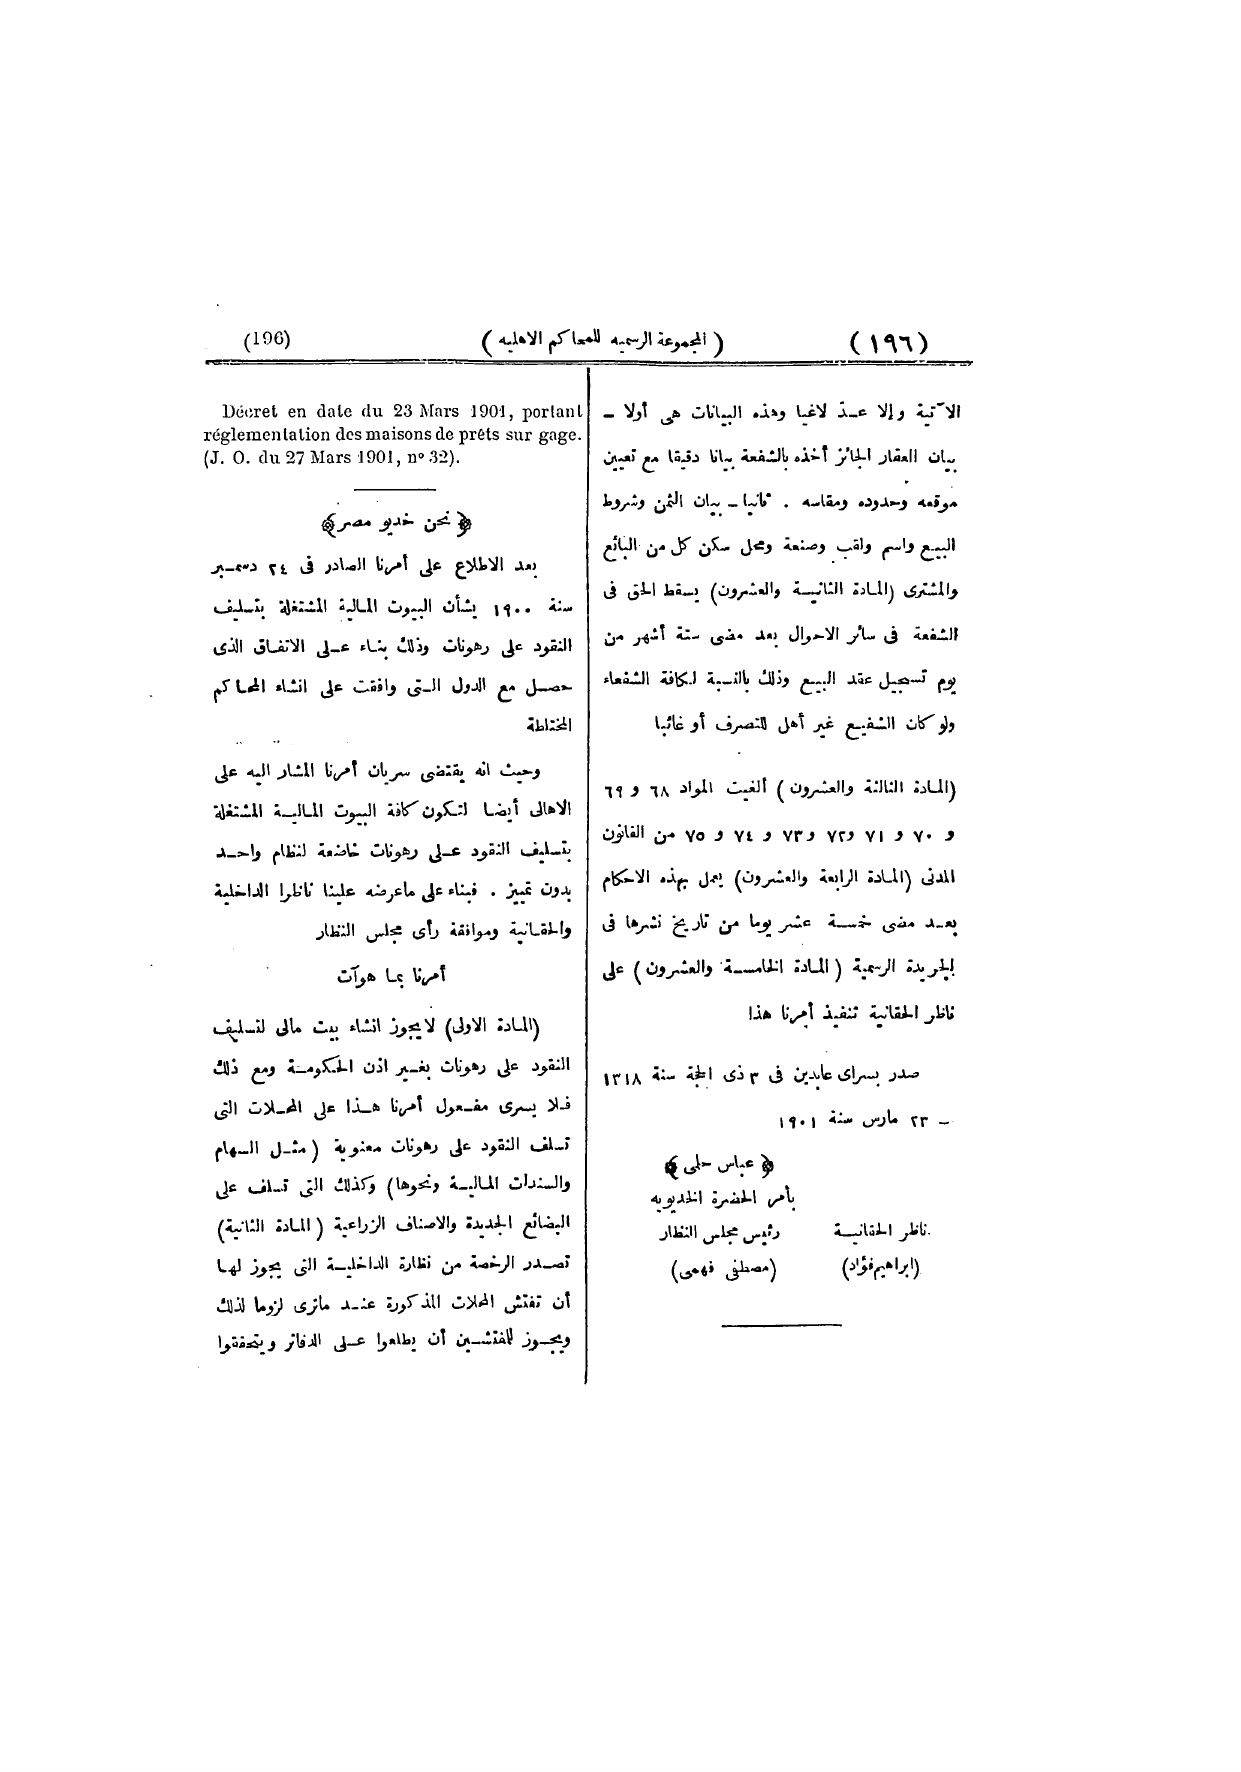 (١٩٦) ( المجموعة الرسميه للمحاكم الاهليه ) (196)
الآتية وإلا عد لاغيا وهذه البيانات هى أولا ـ
بيان العقار الجائز أخذه بالشفعة بيانا دقيقا مع تعيين
موقعه وحدوده ومقاسه . ثانيا ـ بيان الثمن وشروط
البيع واسم ولقب وصنعة ومحل سكن كل من البائع
والمشترى (المادة الثانية والعشرون) يسقط الحق فى
الشفعة فى سائر الاحوال بعد مضى ستة أشهر من
يوم تسجيل عقد البيع وذلك بالنسبة لكافة الشفعاء
ولو كان الشفيع غير أهل للتصرف أو غائبا
(المادة الثالثة والعشرون) ألغيت المواد ٦٨ و ٦٩
و ٧٠ و ٧١ و٧٢ و٧٣ و ٧٤ و ٧٥ من القانون
المدنى (المادة الرابعة والعشرون) يعمل بهذه الاحكام
بعد مضى خمسة عشر يوما من تاريخ نشرها فى
الجريدة الرسمية ( المادة الخامسة والعشرون ) على
ناظر الحقانية تنفيذ أمرنا هذا
صدر بسراى عابدين فى ٣ ذى الحجة سنة ١٣١٨
ـ ٢٣ مارس سنة ١٩٠١
﴿ عباس حلمى ﴾
بأمر الحضرة الخديويه
ناظر الحقانية رئيس مجلس النظار
(ابراهيم فؤاد) (مصطفى فهمى)
Décret en date du 23 Mars 1901, portant
réglementation des maisons de prêts sur gage.
(J. O. du 27 Mars 1901, nº 32).
﴿ نحن خديو مصر ﴾
بعد الاطلاع على أمرنا الصادر فى ٢٤ دسمبر
سنة ١٩٠٠ بشأن البيوت المالية المشتغلة بتسليف
النقود على رهونات وذلك بناء على الاتفاق الذى
حصل مع الدول التى وافقت على انشاء المحاكم
المختلطة
وحيث انه يقتضى سريان أمرنا المشار اليه على
الاهالى أيضا لتكون كافة البيوت المالية المشتغلة
بتسليف النقود على رهونات خاضعة لنظام واحد
بدون تمييز . فبناء على ماعرضه علينا ناظرا الداخلية
والحقانية وموافقة رأى مجلس النظار
أمرنا بما هوآت
(المادة الاولى) لايجوز انشاء بيت مالى لتسليف
النقود على رهونات بغير اذن الحكومة ومع ذلك
فلا يسرى مفعول أمرنا هذا على المحلات التى
تسلف النقود على رهونات معنوية (مثل السهام
والسندات المالية ونحوها) وكذلك التى تسلف على
البضائع الجديدة والاصناف الزراعية (المادة الثانية)
تصدر الرخصة من نظارة الداخلية التى يجوز لها
أن تفتش المحلات المذكورة عند ماترى لزوما لذلك
ويجوز للمفتشين أن يطلعوا على الدفاتر ويتحققوا